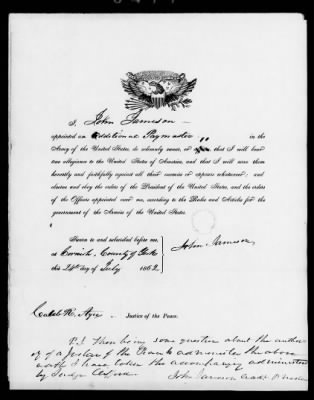 I, John Jameson
appointed an Additional Paymaster in the
Army of the United States, do solemnly swear, or affirm, that I will bear
true allegiance to the United States of America, and that I will serve them
honestly and faithfully against all their enemies or opposers whatsoever; and
observe and obey the orders of the President of the United States, and the orders
of the Officers appointed over me, according to the Rules and Articles for the
government of the Armies of the United States.
Sworn to and subscribed before me,
at Cornish, County of York
this 24th day of July 1862
John Jameson
Caleb R. Ayer Justice of the Peace.
P.S. There being some question about the
of a Justice of the Peace to administer the above
oath I have taken the accompanying administered
by Judge
John Jameson